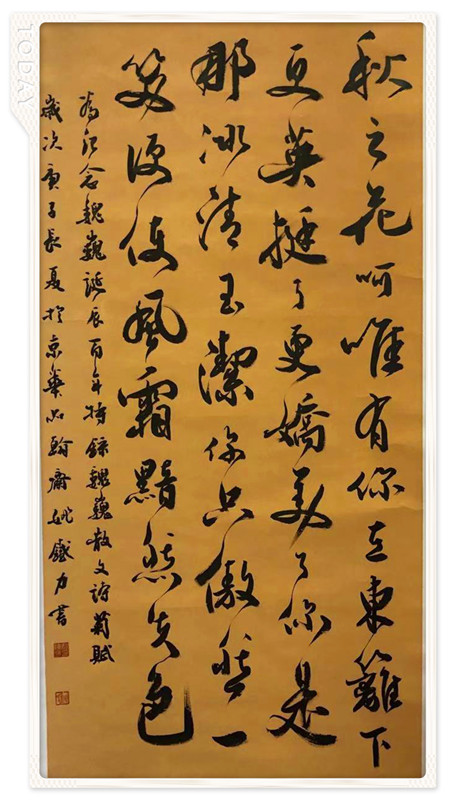 秋之花呵唯有你在東籬下
更英挺了更嬌美了你是
那冰清玉潔你只傲然一
笑便使風霜黯然失色
為紀念魏巍誕辰百年特錄魏巍散文詩菊賦
歲次庚子長夏於京華品翰齋姚鐵力書
TODAY